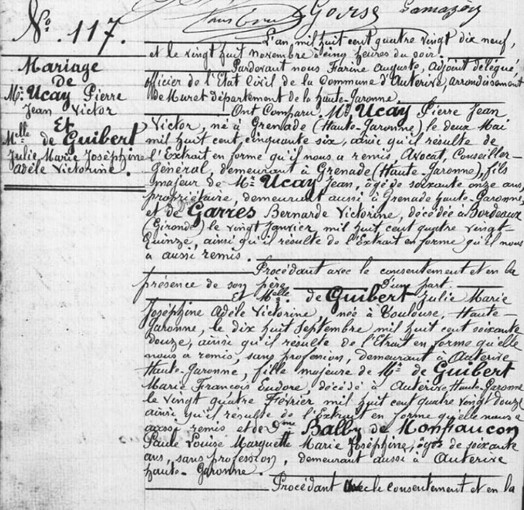 Gorse Lamazou
N° 117.
Mariage
De
Mr. Ucay Pierre
Jean Victor
Et
Melle de Guibert
Julie Marie Joséphine
Adèle Victorine.
L'an mil huit cent quatre vingt dix neuf,
et le vingt huit novembre à cinq heures du soir.
Pardevant nous Farine Auguste, adjoint délégué,
officier de l'État Civil de la Commune d'Auterive, arrondissement
de Muret département de la Haute-Garonne.
Ont Comparu Mr. Ucay Pierre Jean
Victor, né à Grenade (Haute-Garonne) le deux Mai
mil huit cent cinquante six, ainsi qu'il résulte de
l'Extrait en forme qu'il nous a remis, Avocat, Conseiller-
Général, demeurant à Grenade (Haute-Garonne), fils
majeur de Mr. Ucay Jean, âgé de soixante onze ans
propriétaire, demeurant aussi à Grenade Haute-Garonne,
et de Garres Bernarde Victorine, décédée à Bordeaux
(Gironde) le vingt Janvier mil huit cent quatre vingt-
Quinze, ainsi qu'il résulte de l'Extrait en forme qu'il nous
a aussi remis.
Procédant avec le consentement et en la
présence de son père D'une part.
Et Melle de Guibert Julie Marie
Joséphine Adèle Victorine, née à Toulouse, Haute
Garonne, le dix huit Septembre mil huit cent soixante
douze, ainsi qu'il résulte de l'Etrait en forme qu'elle
nous a remis, sans profession, demeurant à Auterive
Haute-Garonne, fille majeure de Mr. de Guibert
Marie François Eudore décédé à Auterive, Haute-Garonne
le vingt quatre Février mil huit cent quatre vingt douze
ainsi qu'il résulte de l'Extrait en forme qu'elle nous a
aussi remis et de Dme Balby de Monfaucon
Paule Louise Marguette Marie Joséphine, âgée de soixante
ans, sans profession, demeurant aussi à Auterive
haute-Garonne.
Procédant avec le consentement et en la